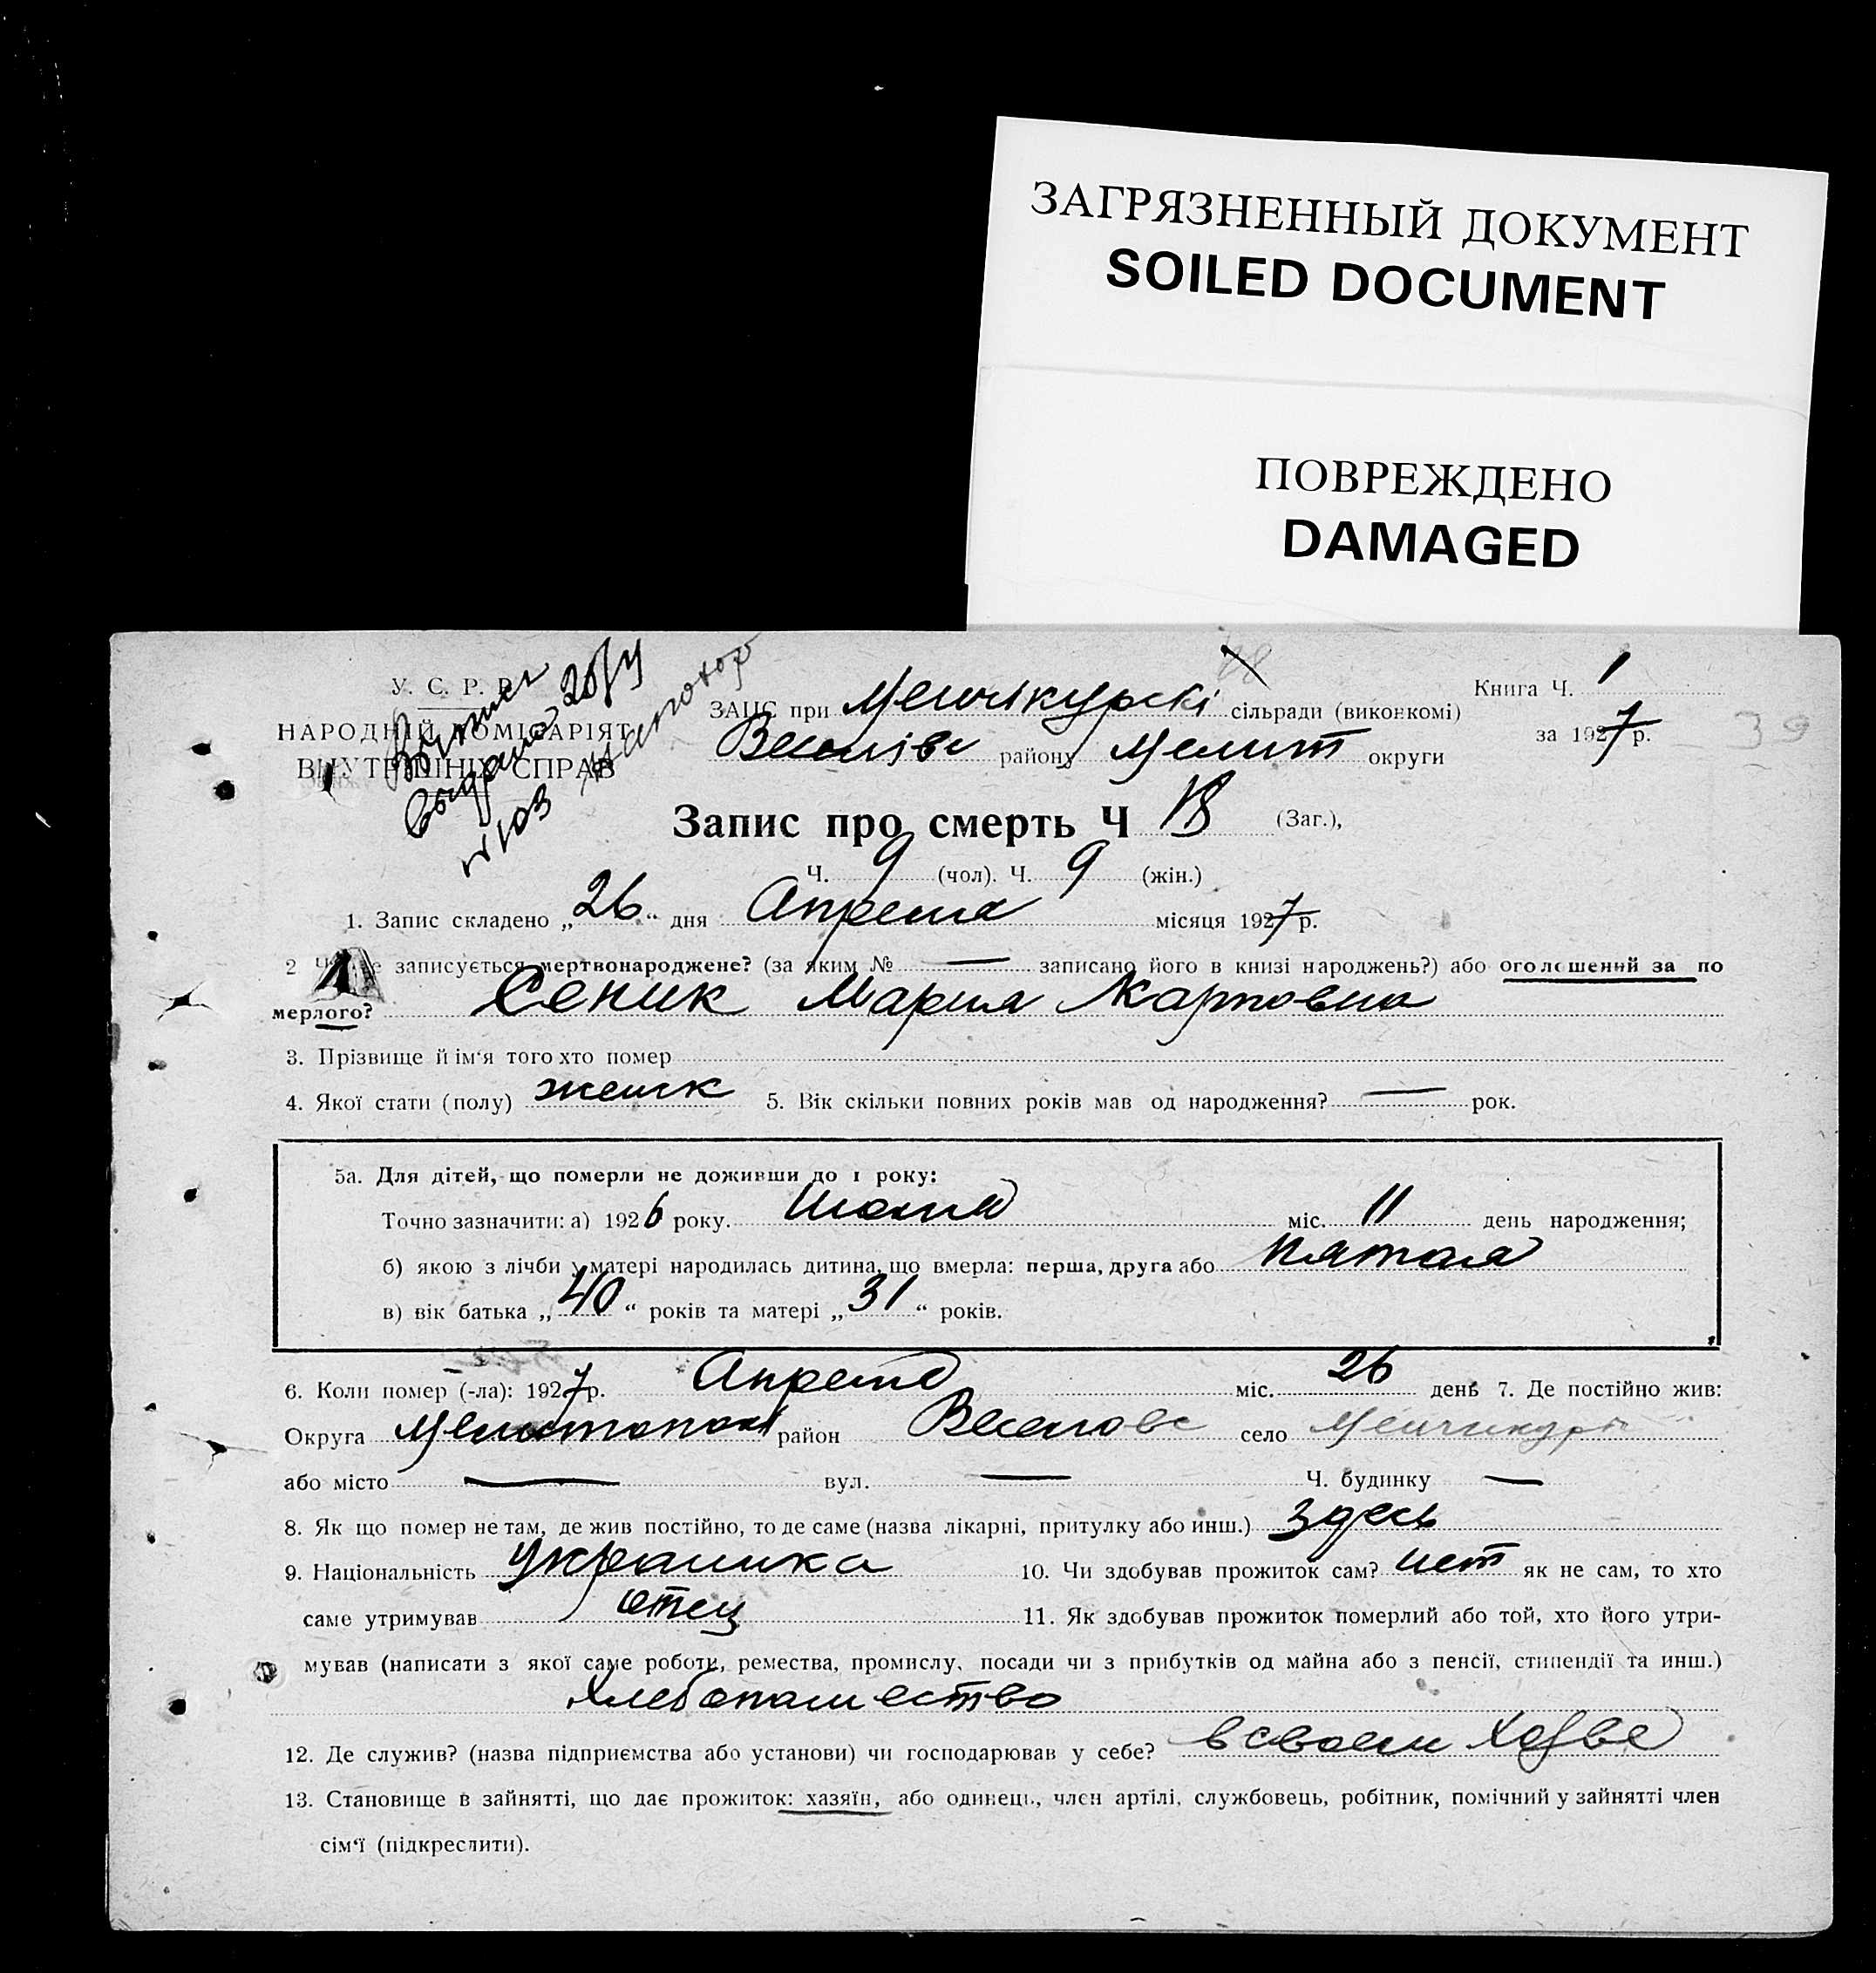 ЗАГРЯЗНЕННЫЙ ДОКУМЕНТ
SOILED DOCUMENT
ПОВРЕЖДЕНО
DAMAGED
У. С. Р. Р.
НАРОДНІЙ КОМІСАРІЯТ
ВНУТРІШНІХ СПРАВ
Выпись
выдана 20/IV
№ 103
ЗАГС при Менчікурскі сільради (виконкомі)
Книга Ч. 1
Веселівс району Мелит округи
за 1927 р.
39
Запис про смерть Ч 18 (Заг.),
Ч. 9 (чол). Ч. 9 (жін.)
1. Запис складено „26“ дня Апреля місяця 1927 р.
2 записується мертвонароджене? (за яким № — записано його в книзі народжень?) або оголошений за по
мерлого? Сеник Мария Карповна
3. Прізвище й ім‘я того хто помер
4. Якої стати (полу) женск 5. Вік скільки повних років мав од народження? — рок.
5а. Для дітей, що померли не доживши до 1 року:
Точно зазначити: а) 1926 року. Июля міс. 11 день народження;
б) якою з лічби у матері народилась дитина, що вмерла: перша, друга або пятая
в) вік батька „40“ років та матері „31“ років.
6. Коли помер (-ла): 1927 р. Апреля міс. 26 день 7. Де постійно жив:
Округа Мелитопол район Веселовс село Менчикуры
або місто — вул. — Ч. будинку —
8. Як що помер не там, де жив постійно, то де саме (назва лікарні, притулку або инш.) здесь
9. Національність Украинка 10. Чи здобував прожиток сам? нет як не сам, то хто
саме утримував отец 11. Як здобував прожиток померлий або той, хто його утри-
мував (написати з якої саме роботи, ремества, промислу, посади чи з прибутків од майна або з пенсії, стипендії та инш.)
Хлебопашество
12. Де служив? (назва підприємства або установи) чи господарював у себе? в своем хозве
13. Становище в зайнятті, що дає прожиток: хазяїн, або одинець, член артілі, службовець, робітник, помічний у зайнятті член
сім‘ї (підкреслити).